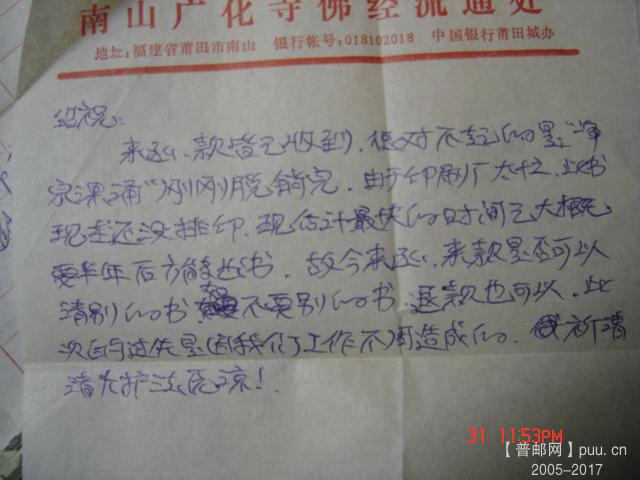 南山广化寺佛经流通处
地址:福建省莆田市南山 银行帐号:018102018 中国银行莆田城办
绍祝:
来函、款皆已收到,很对不起的是,“净
宗课诵”刚刚脱销完,由于印刷厂太忙,此书
现在还没排印,现估计最快的时间也大概
要半年后方能出书,故今来函,来款是否可以
请别的书,不要别的书,退款也可以,此
次的过失是因我们工作不周造成的,祈请
请大护法原谅!
31 11:53PM
【普邮网】puu.cn
2005-2017